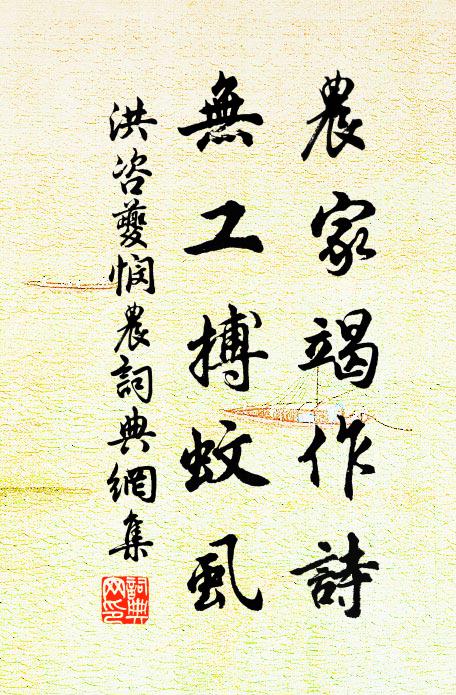 農家竭作詩
無工搏蚊虱
洪咨夔憫農詞典網集
詞典网印